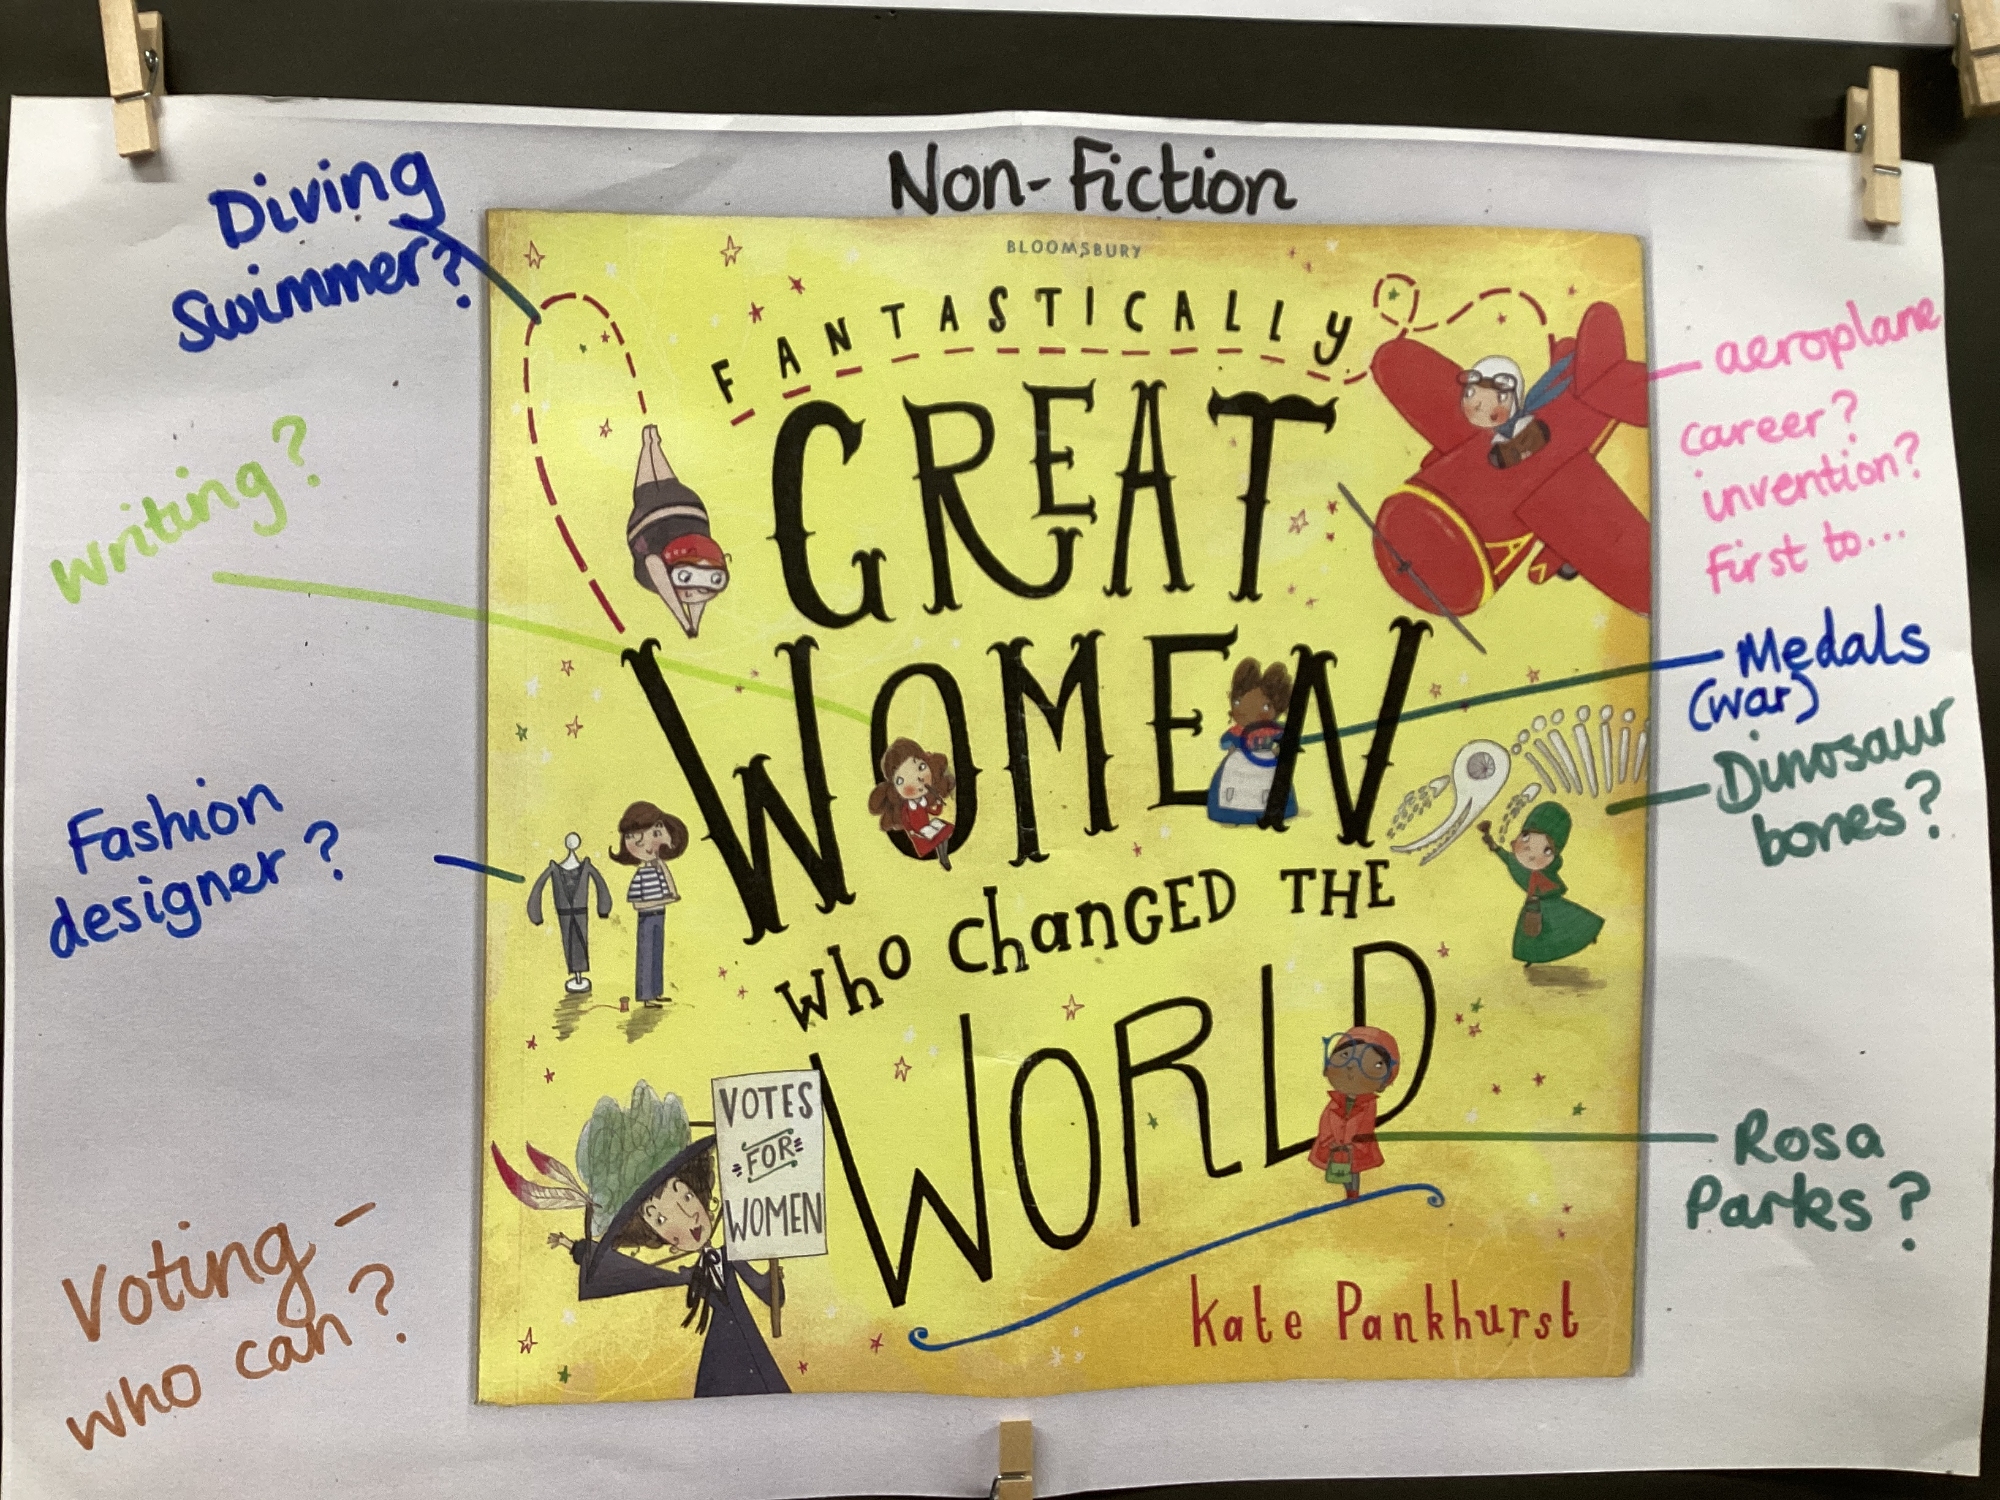 Non-Fiction
Diving
Swimmer?
writing?
Fashion
designer?
Voting -
who can?
BLOOMSBURY
FANTASTICALLY
GREAT
WOMEN
who changed THE
WORLD
VOTES
FOR
WOMEN
Kate Pankhurst
aeroplane
career?
invention?
First to...
Medals
(war)
Dinosaur
bones?
Rosa
Parks?